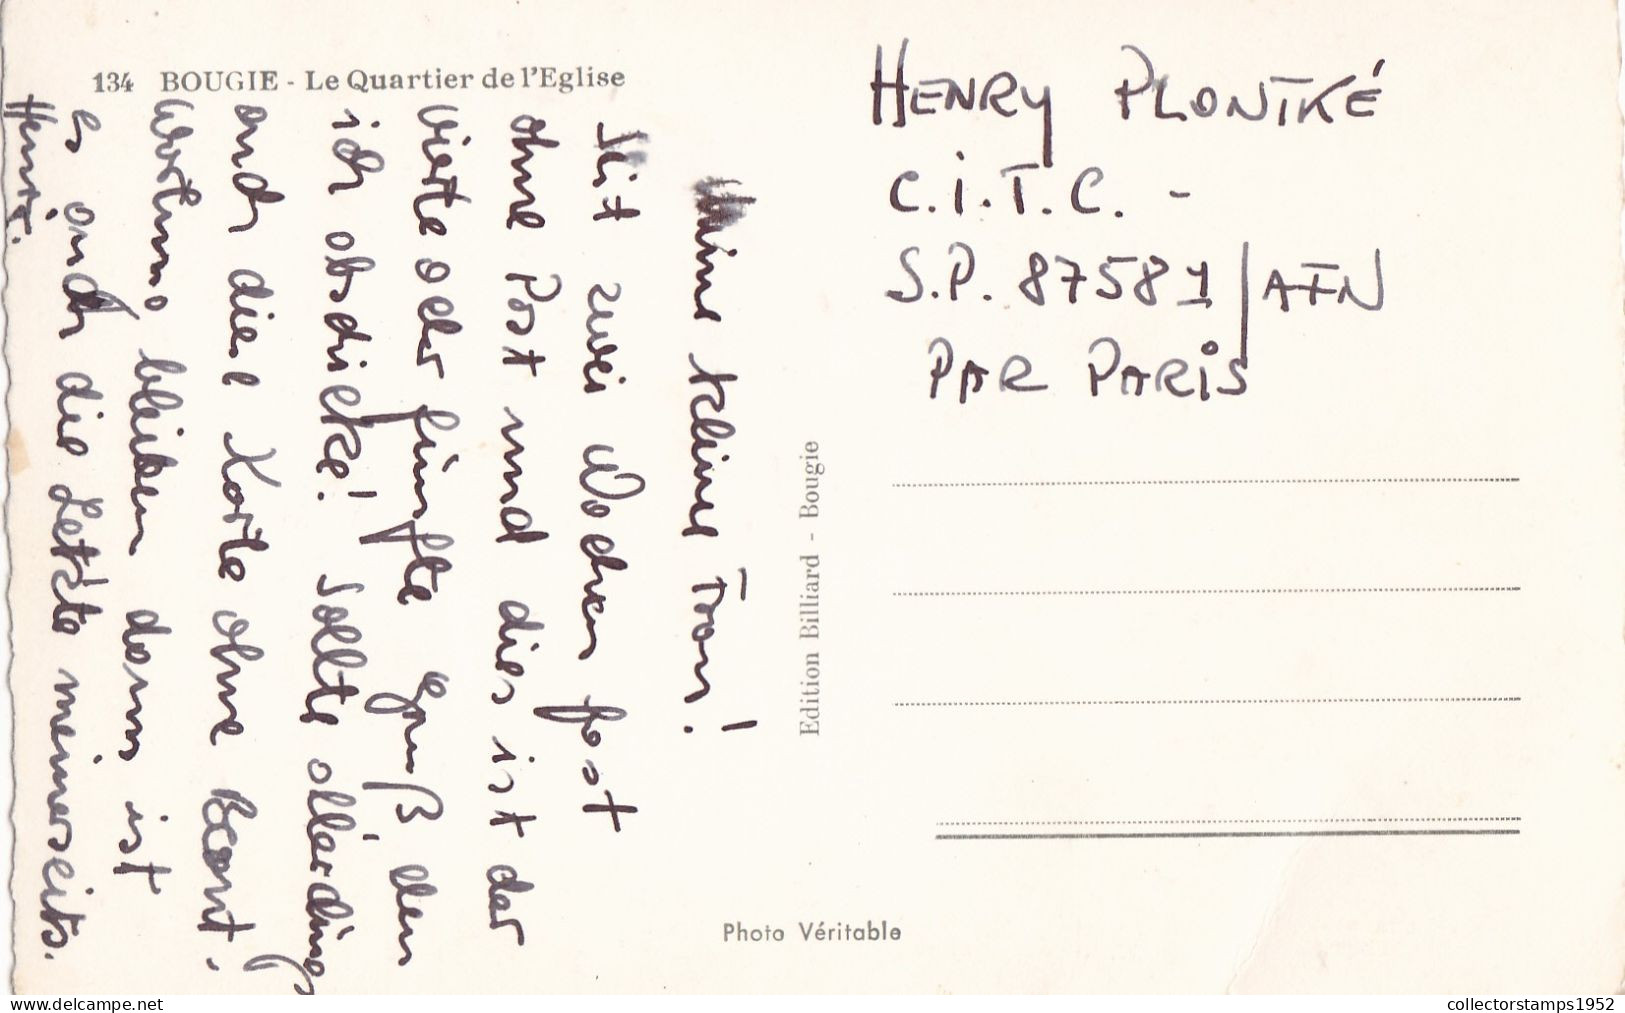 134 BOUGIE - Le Quartier de l'Eglise
HENRY PLONTKÉ
C.I.T.C. -
S.P. 87581/AFN
PAR PARIS
Meine kleine Frau!
Seit zwei Wochen fast
ohne Post und dies ist der
vierte oder fünfte Gruß den
ich abschicke! Sollte allerdings
auch diese Karte ohne Beant-
wortung bleiben dann ist
es auch die Letzte meinerseits.
Edition Billiard - Bougie
Photo Véritable
collectorstamps1952